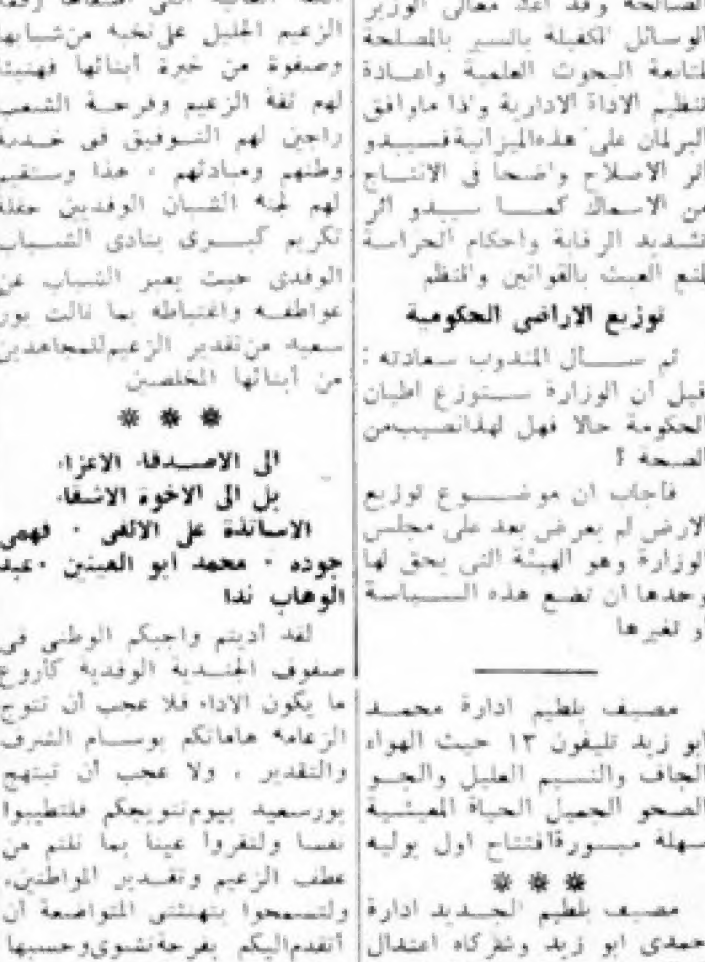 الصالحة وقد اعد معالى الوزير
الوسائل الكفيلة بالسير بالمصلحة
لمتابعة البحوث العلمية واعادة
تنظيم الاداة الادارية واذا ماوافق
البرلمان على هذه الميزانية فسيبدو
اثر الاصلاح واضحا فى الانتاج
من الاسماك كما سيبدو اثر
تشديد الرقابة واحكام الحراسة
لمنع العبث بالقوانين والنظم
توزيع الاراضى الحكومية
ثم سأل المندوب سعادته :
قيل ان الوزارة ستوزع اطيان
الحكومة حالا فهل لهذا نصيب من
الصحة ؟
فأجاب ان موضوع توزيع
الارض لم يعرض بعد على مجلس
الوزارة وهو الهيئة التى يحق لها
وحدها ان تضع هذه السياسة
او تغيرها
مصيف بلطيم ادارة محمد
ابو زيد تليفون ١٣ حيث الهواء
الجاف والنسيم العليل والجو
الصحو الجميل الحياة المعيشية
سهلة ميسورة افتتاح اول يوليه
* * *
مصيف بلطيم الجديد ادارة
حمدى ابو زيد وشركاه اعتدال
الزعيم الجليل على نخبة من شبابها
وصفوة من خيرة أبنائها فهنيئا
لهم ثقة الزعيم وفرحة الشعب
راجين لهم التوفيق فى خدمة
وطنهم ومبادئهم ، هذا وستقيم
لهم لجنة الشبان الوفديين حفلة
تكريم كبرى بنادى الشباب
الوفدى حيث يعبر الشباب عن
عواطفه واغتباطه بما نالت بور
سعيد من تقدير الزعيم للمجاهدين
من أبنائها المخلصين
* * *
الى الاصدقاء الاعزاء
بل الى الاخوة الاشقاء
الاساتذة على الالفى - فهمى
جوده - محمد ابو العينين - عبد
الوهاب ندا
لقد أديتم واجبكم الوطنى فى
صفوف الجندية الوفدية كأروع
ما يكون الاداء فلا عجب أن تتوج
الزعامة هاماتكم بوسام الشرف
والتقدير ، ولا عجب أن تبتهج
بورسعيد بيوم تتويجكم فلتطيبوا
نفسا ولتقروا عينا بما نلتم من
عطف الزعيم وتقدير المواطنين.
ولتسمحوا بتهنئتى المتواضعة أن
أتقدم اليكم بفرحة نشوى وحسبها